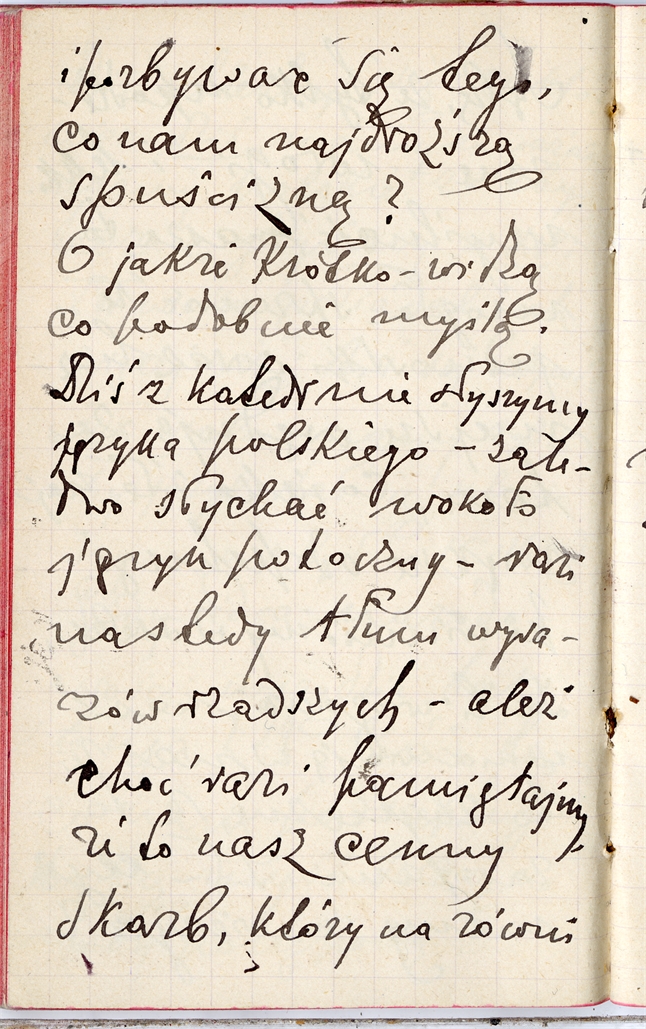 i pozbywać się tego,
co nam najdroższą
spuścizną?
O jakże krótko-widzą
co podobnie myślą.
Dziś z katedr nie słyszymy
języka polskiego - zale-
dwo słychać wokoło
język potoczny - razi
nas tedy tłum wyra-
zów rzadszych - ależ
choć razi pamiętajmy,
że to nasz cenny
skarb, który na równi